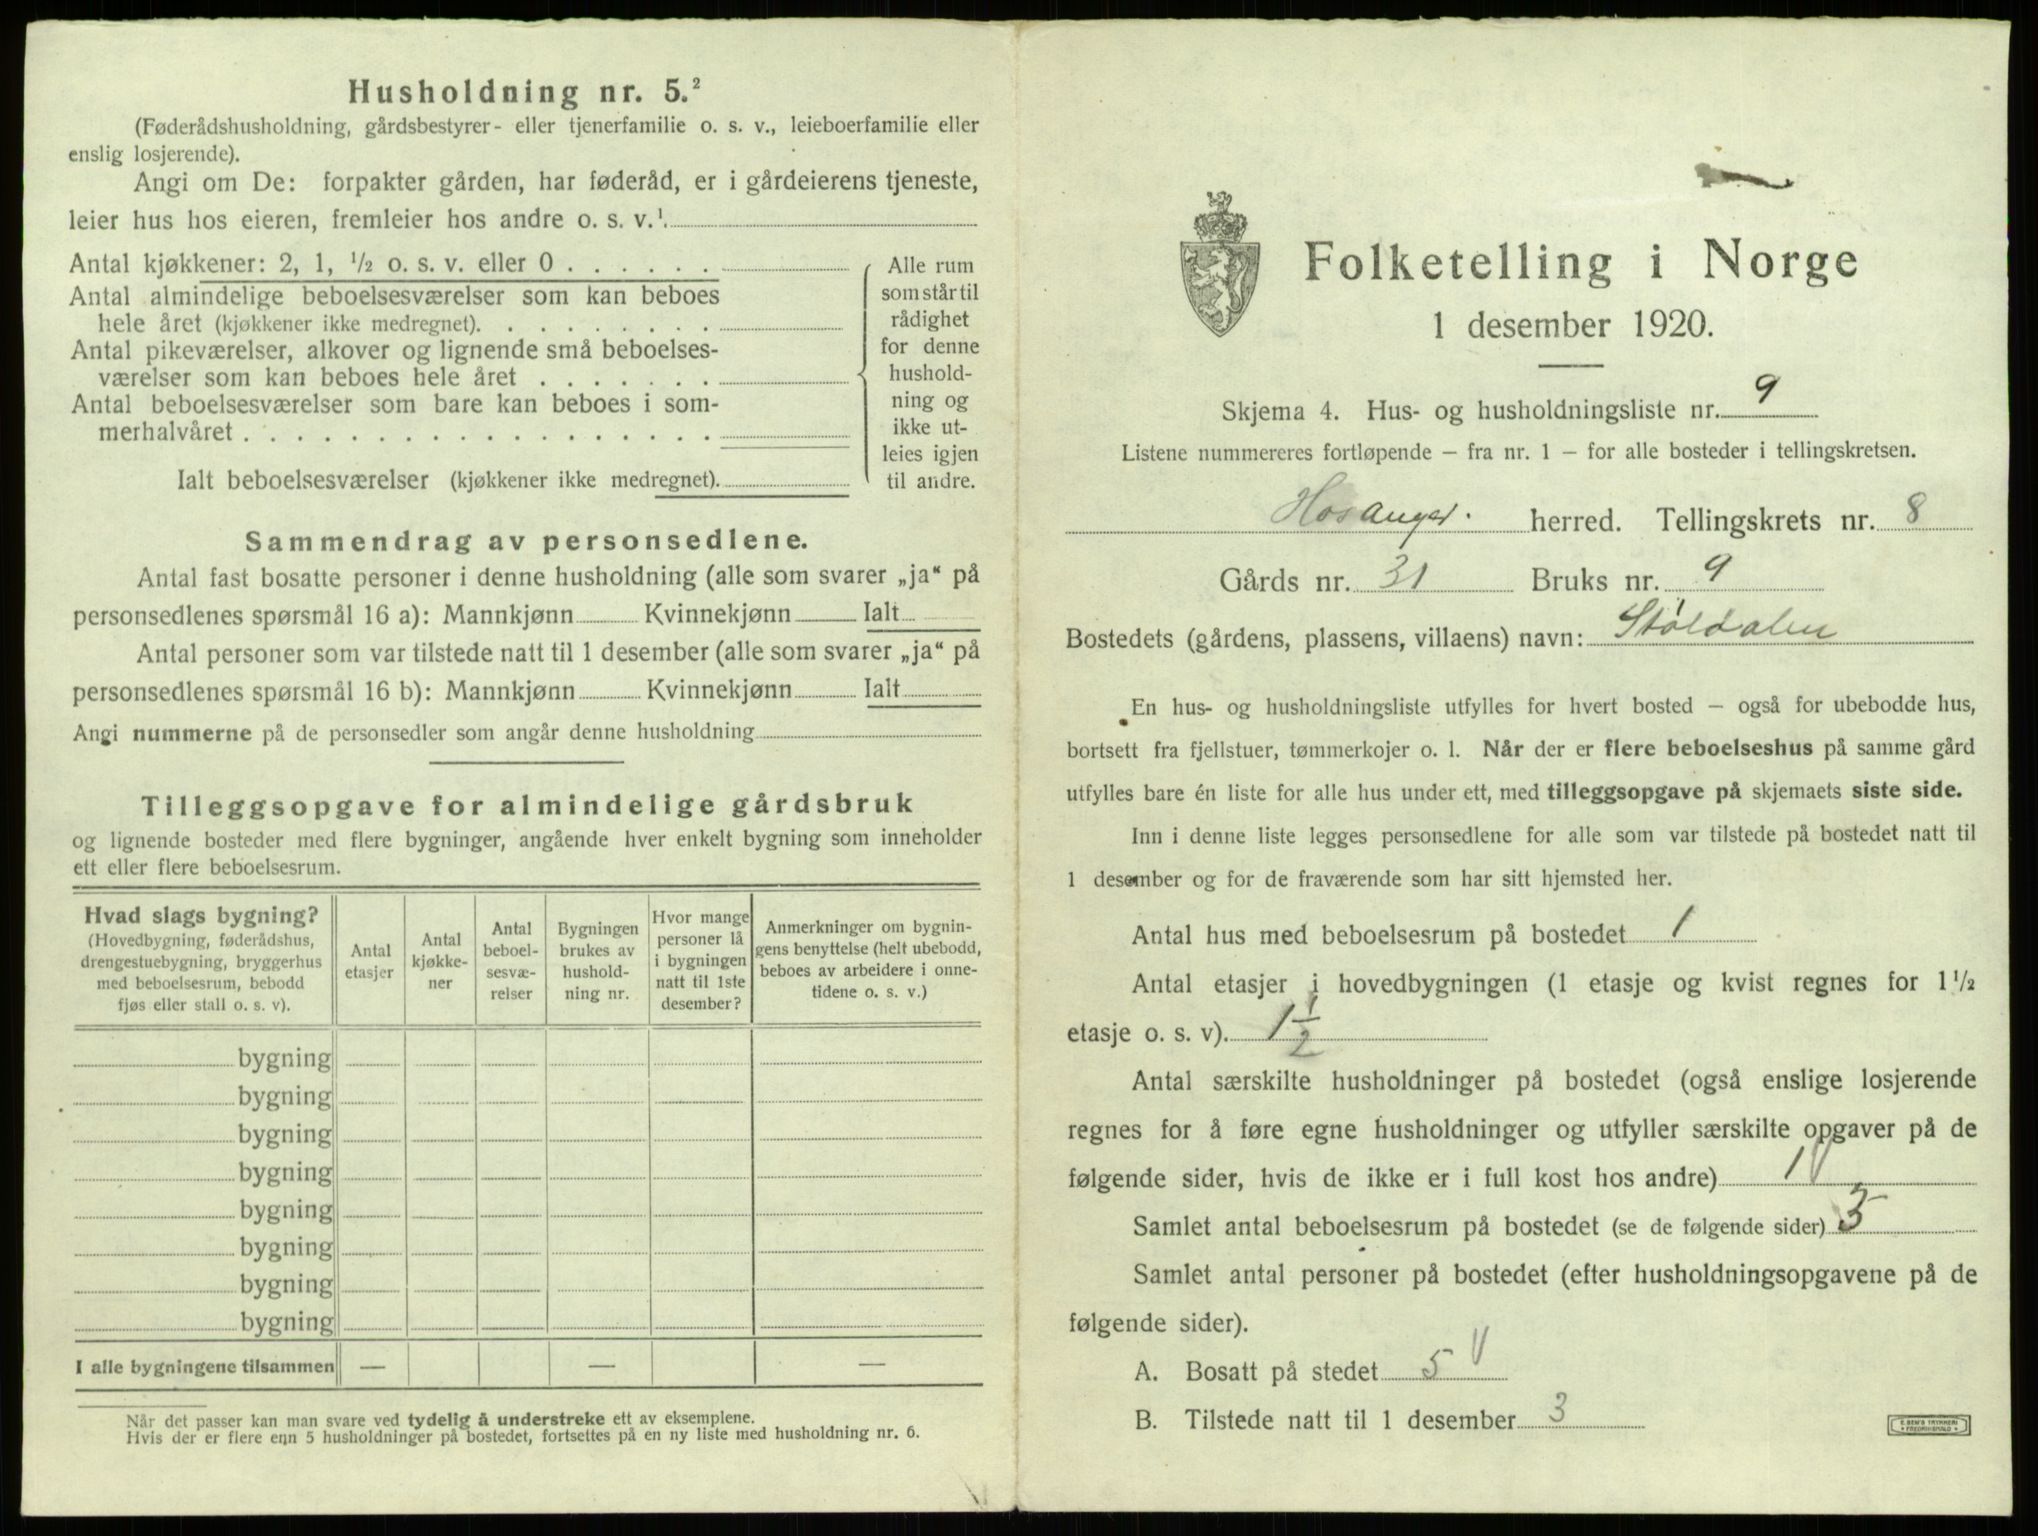 Husholdning nr. 5.²
(Føderådshusholdning, gårdsbestyrer- eller tjenerfamilie o. s. v., leieboerfamilie eller
enslig losjerende).
Angi om De: forpakter gården, har føderåd, er i gårdeierens tjeneste,
leier hus hos eieren, fremleier hos andre o. s. v.¹.
Antal kjøkkener: 2, 1, ½ o. s. v. eller 0 . . . . . .
Antal almindelige beboelsesværelser som kan beboes
hele året (kjøkkener ikke medregnet). . . . . . . . .
Antal pikeværelser, alkover og lignende små beboelses-
værelser som kan beboes hele året . . . . . . .
Antal beboelsesværelser som bare kan beboes i som-
merhalvåret . . . . . . . . . . . . . . . . . .
Ialt beboelsesværelser (kjøkkener ikke medregnet).
Alle rum
som står til
rådighet
for denne
hushold-
ning og
ikke ut-
leies igjen
til andre.
Sammendrag av personsedlene.
Antal fast bosatte personer i denne husholdning (alle som svarer „ja“ på
personsedlenes spørsmål 16 a): Mannkjønn Kvinnekjønn Ialt
Antal personer som var tilstede natt til 1 desember (alle som svarer „ja“ på
personsedlenes spørsmål 16 b): Mannkjønn Kvinnekjønn Ialt
Angi nummerne på de personsedler som angår denne husholdning
Tilleggsopgave for almindelige gårdsbruk
og lignende bosteder med flere bygninger, angående hver enkelt bygning som inneholder
ett eller flere beboelsesrum.
Hvad slags bygning?
(Hovedbygning, føderådshus,
drengestuebygning, bryggerhus
med beboelsesrum, bebodd
fjøs eller stall o. s. v).
Antal
etasjer
Antal
kjøkke-
ner
Antal
beboel-
sesvæ-
relser
Bygningen
brukes av
hushold-
ning nr.
Hvor mange
personer lå
i bygningen
natt til 1ste
desember?
Anmerkninger om bygnin-
gens benyttelse (helt ubebodd,
beboes av arbeidere i onne-
tidene o. s. v.)
bygning
bygning
bygning
bygning
bygning
bygning
bygning
bygning
I alle bygningene tilsammen — — —
Når det passer kan man svare ved tydelig å understreke ett av eksemplene.
Hvis der er flere enn 5 husholdninger på bostedet, fortsettes på en ny liste med husholdning nr. 6.
Folketelling i Norge
1 desember 1920.
Skjema 4. Hus- og husholdningsliste nr. 9
Listene nummereres fortløpende — fra nr. 1 — for alle bosteder i tellingskretsen.
Hosanger. herred. Tellingskrets nr. 8
Gårds nr. 31 Bruks nr. 9
Bostedets (gårdens, plassens, villaens) navn: Støldalen
En hus- og husholdningsliste utfylles for hvert bosted — også for ubebodde hus,
bortsett fra fjellstuer, tømmerkojer o. l. Når der er flere beboelseshus på samme gård
utfylles bare én liste for alle hus under ett, med tilleggsopgave på skjemaets siste side.
Inn i denne liste legges personsedlene for alle som var tilstede på bostedet natt til
1 desember og for de fraværende som har sitt hjemsted her.
Antal hus med beboelsesrum på bostedet 1
Antal etasjer i hovedbygningen (1 etasje og kvist regnes for 1 ½
etasje o. s. v). 1 ½
Antal særskilte husholdninger på bostedet (også enslige losjerende
regnes for å føre egne husholdninger og utfyller særskilte opgaver på de
følgende sider, hvis de ikke er i full kost hos andre) 1
Samlet antal beboelsesrum på bostedet (se de følgende sider)
Samlet antal personer på bostedet (efter husholdningsopgavene på de
følgende sider).
A. Bosatt på stedet 5
B. Tilstede natt til 1 desember 3